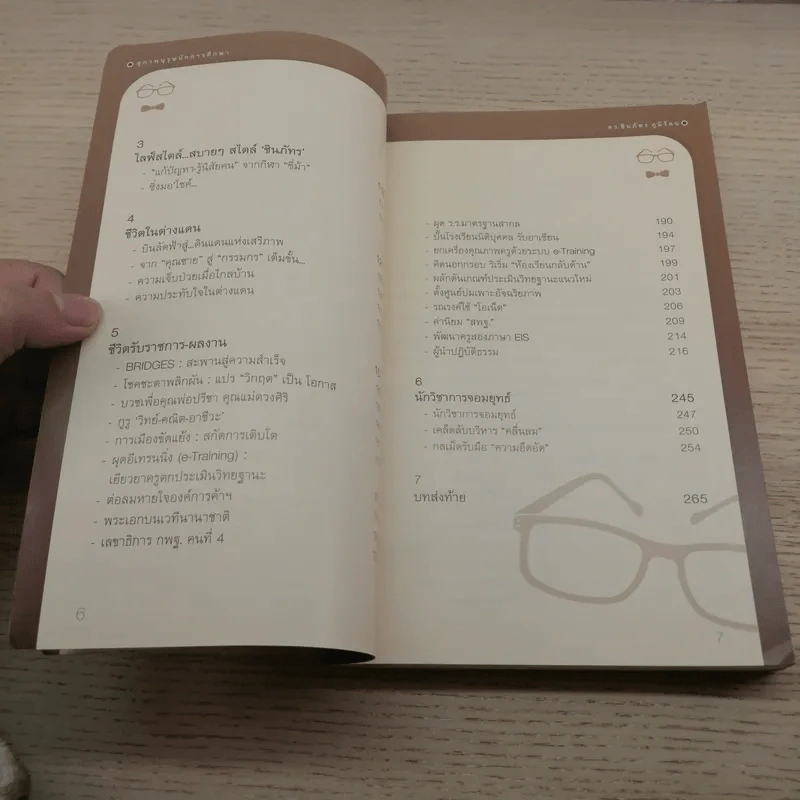 สุภาพบุรุษนักการศึกษา
3
ไลฟ์สไตล์...สบายๆ สไตล์ 'ชินภัทร'
- "แก้ปัญหา-รู้นิสัยคน" จากกีฬา "ขี่ม้า"
- ซึ่งมอไซค์...
4
ชีวิตในต่างแดน
- บินลัดฟ้าสู่...ดินแดนแห่งเสรีภาพ
- จาก "คุณชาย" สู่ "กรรมกร" เต็มขั้น...
- ความเจ็บป่วยเมื่อไกลบ้าน
- ความประทับใจในต่างแดน
5
ชีวิตรับราชการ-ผลงาน
- BRIDGES : สะพานสู่ความสำเร็จ
- โชคชะตาพลิกผัน : แปร "วิกฤต" เป็น โอกาส
- บวชเพื่อคุณพ่อปรีชา คุณแม่ดวงศิริ
- กูรู 'วิทย์-คณิต-อาชีวะ'
- การเมืองขัดแย้ง : สกัดการเติบโต
- ผุดอีเทรนนิ่ง (e-Training) :
เยียวยาครูตกประเมินวิทยฐานะ
- ต่อลมหายใจองค์การค้าฯ
- พระเอกบนเวทีนานาชาติ
- เลขาธิการ กพฐ. คนที่ 4
6
ดร.ชินภัทร ภูมิรัตน
- ผุด ร.ร.มาตรฐานสากล 190
- ปั้นโรงเรียนนิติบุคคล รับอาเซียน 194
- ยกเครื่องคุณภาพครูด้วยระบบ e-Training 197
- คิดนอกกรอบ ริเริ่ม "ห้องเรียนกลับด้าน" 199
- ผลักดันเกณฑ์ประเมินวิทยฐานะแนวใหม่ 201
- ตั้งศูนย์บ่มเพาะอัจฉริยภาพ 203
- รณรงค์ใช้ "โอเน็ต" 206
- ค่านิยม "สพฐ." 209
- พัฒนาครูสองภาษา EIS 214
- ผู้นำปฏิบัติธรรม 216
6
นักวิชาการจอมยุทธ์ 245
- นักวิชาการจอมยุทธ์ 247
- เคล็ดลับบริหาร "คลื่นลม" 250
- กลเม็ดรับมือ "ความอึดอัด" 254
7
บทส่งท้าย 265
7